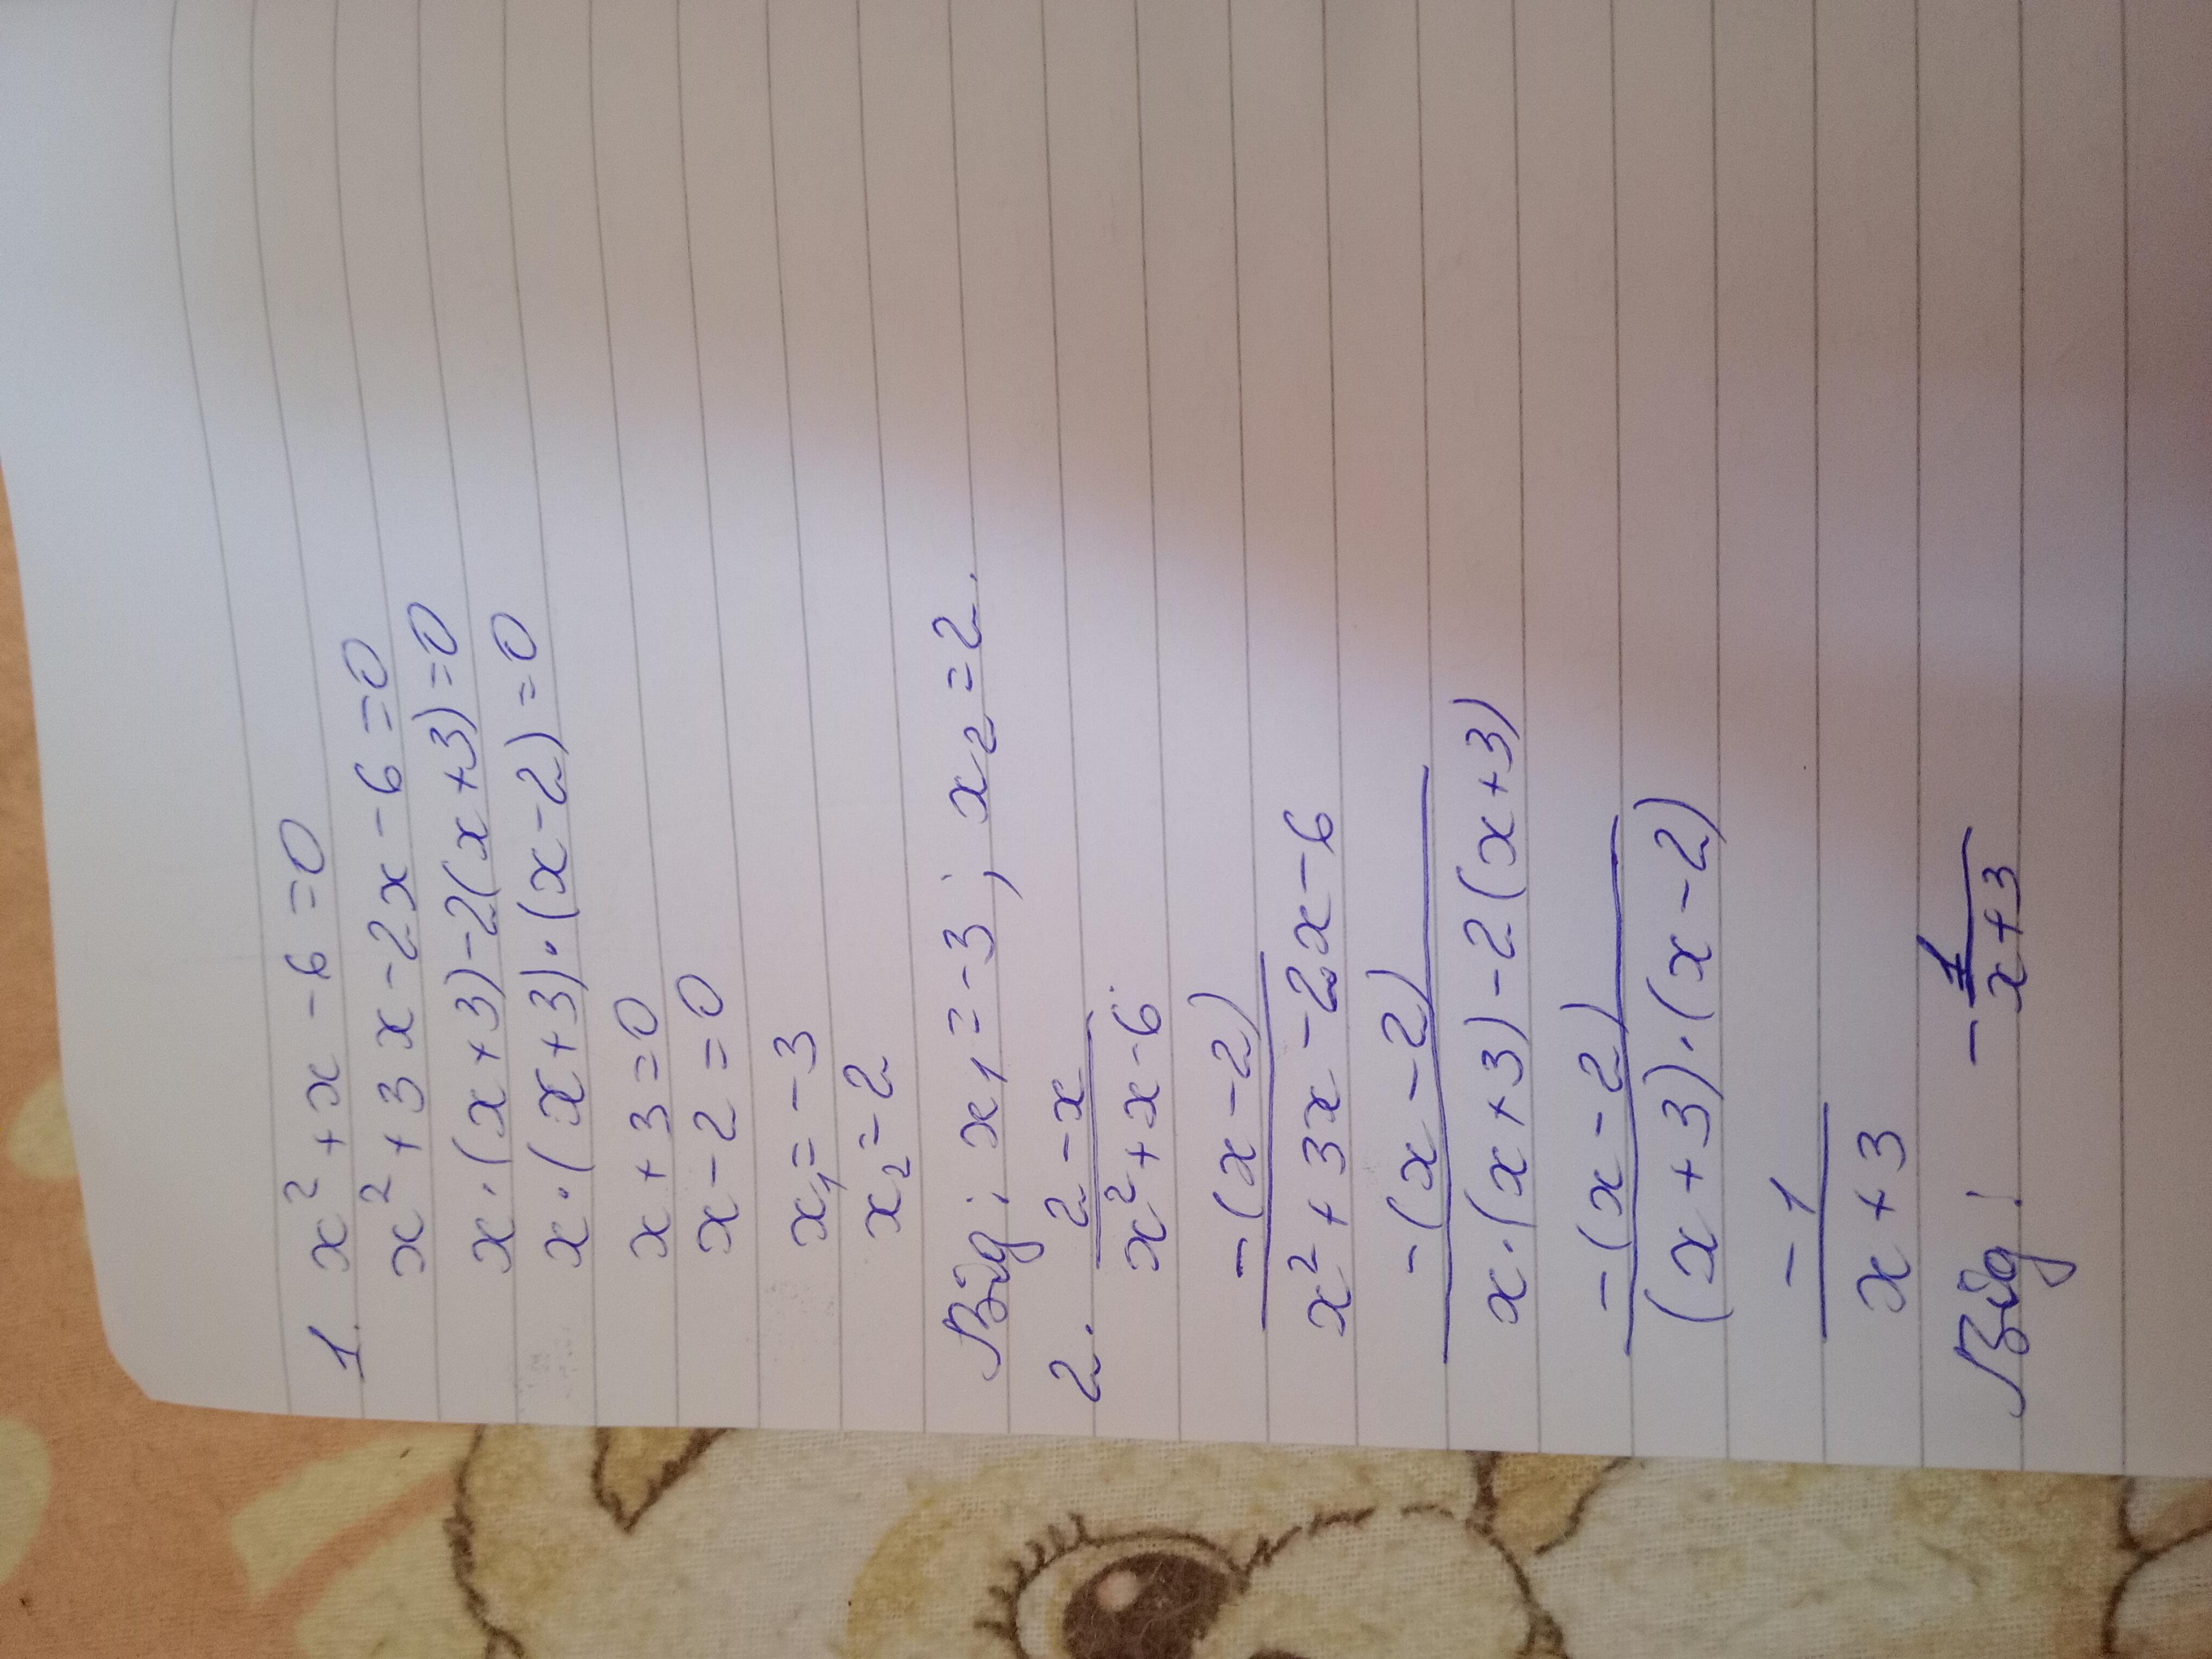 1. x² + x - 6 = 0
x² + 3x - 2x - 6 = 0
x · (x + 3) - 2(x + 3) = 0
x · (x + 3) · (x - 2) = 0
x + 3 = 0
x - 2 = 0
x₁ = -3
x₂ = 2
Від: x₁ = -3; x₂ = 2.
2. 2 - x
x² + x - 6
-(x - 2)
x² + 3x - 2x - 6
-(x - 2)
x · (x + 3) - 2(x + 3)
-(x - 2)
(x + 3) · (x - 2)
-1
x + 3
Від: - 1
x + 3